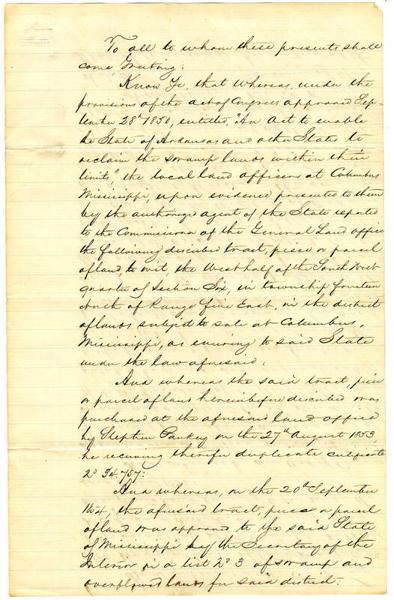 To all to whom these presents shall
come Greeting:
Know Ye, that whereas, under the
provisions of the act of Congress approved Sep-
tember 28th 1850, entitled, "An Act to enable
the State of Arkansas and other States to
reclaim the swamp lands within their
limits" the local land officers at Columbus
Mississippi, upon evidence presented to them
by the authorized agent of the State reported
to the Commissioner of the General Land office
the following described tract, piece or parcel
of land to wit, the West half of the South West
quarter of Section Six, in township fourteen
North of Range five East, in the district
of lands subject to sale at Columbus,
Mississippi, as enuring to said State
under the law aforesaid;
And whereas the said tract, piece
or parcel of land hereinbefore described was
purchased at the aforesaid land office
by Stephen on the 27th August 1853,
he receiving therefor duplicate certificate
No 34.757:
And whereas, on the 20th September
1854, the aforesaid tract, piece or parcel
of land was approved to the said State
of Mississippi by the Secretary of the
Interior in a list No 3 of swamp and
overflowed lands for said district: